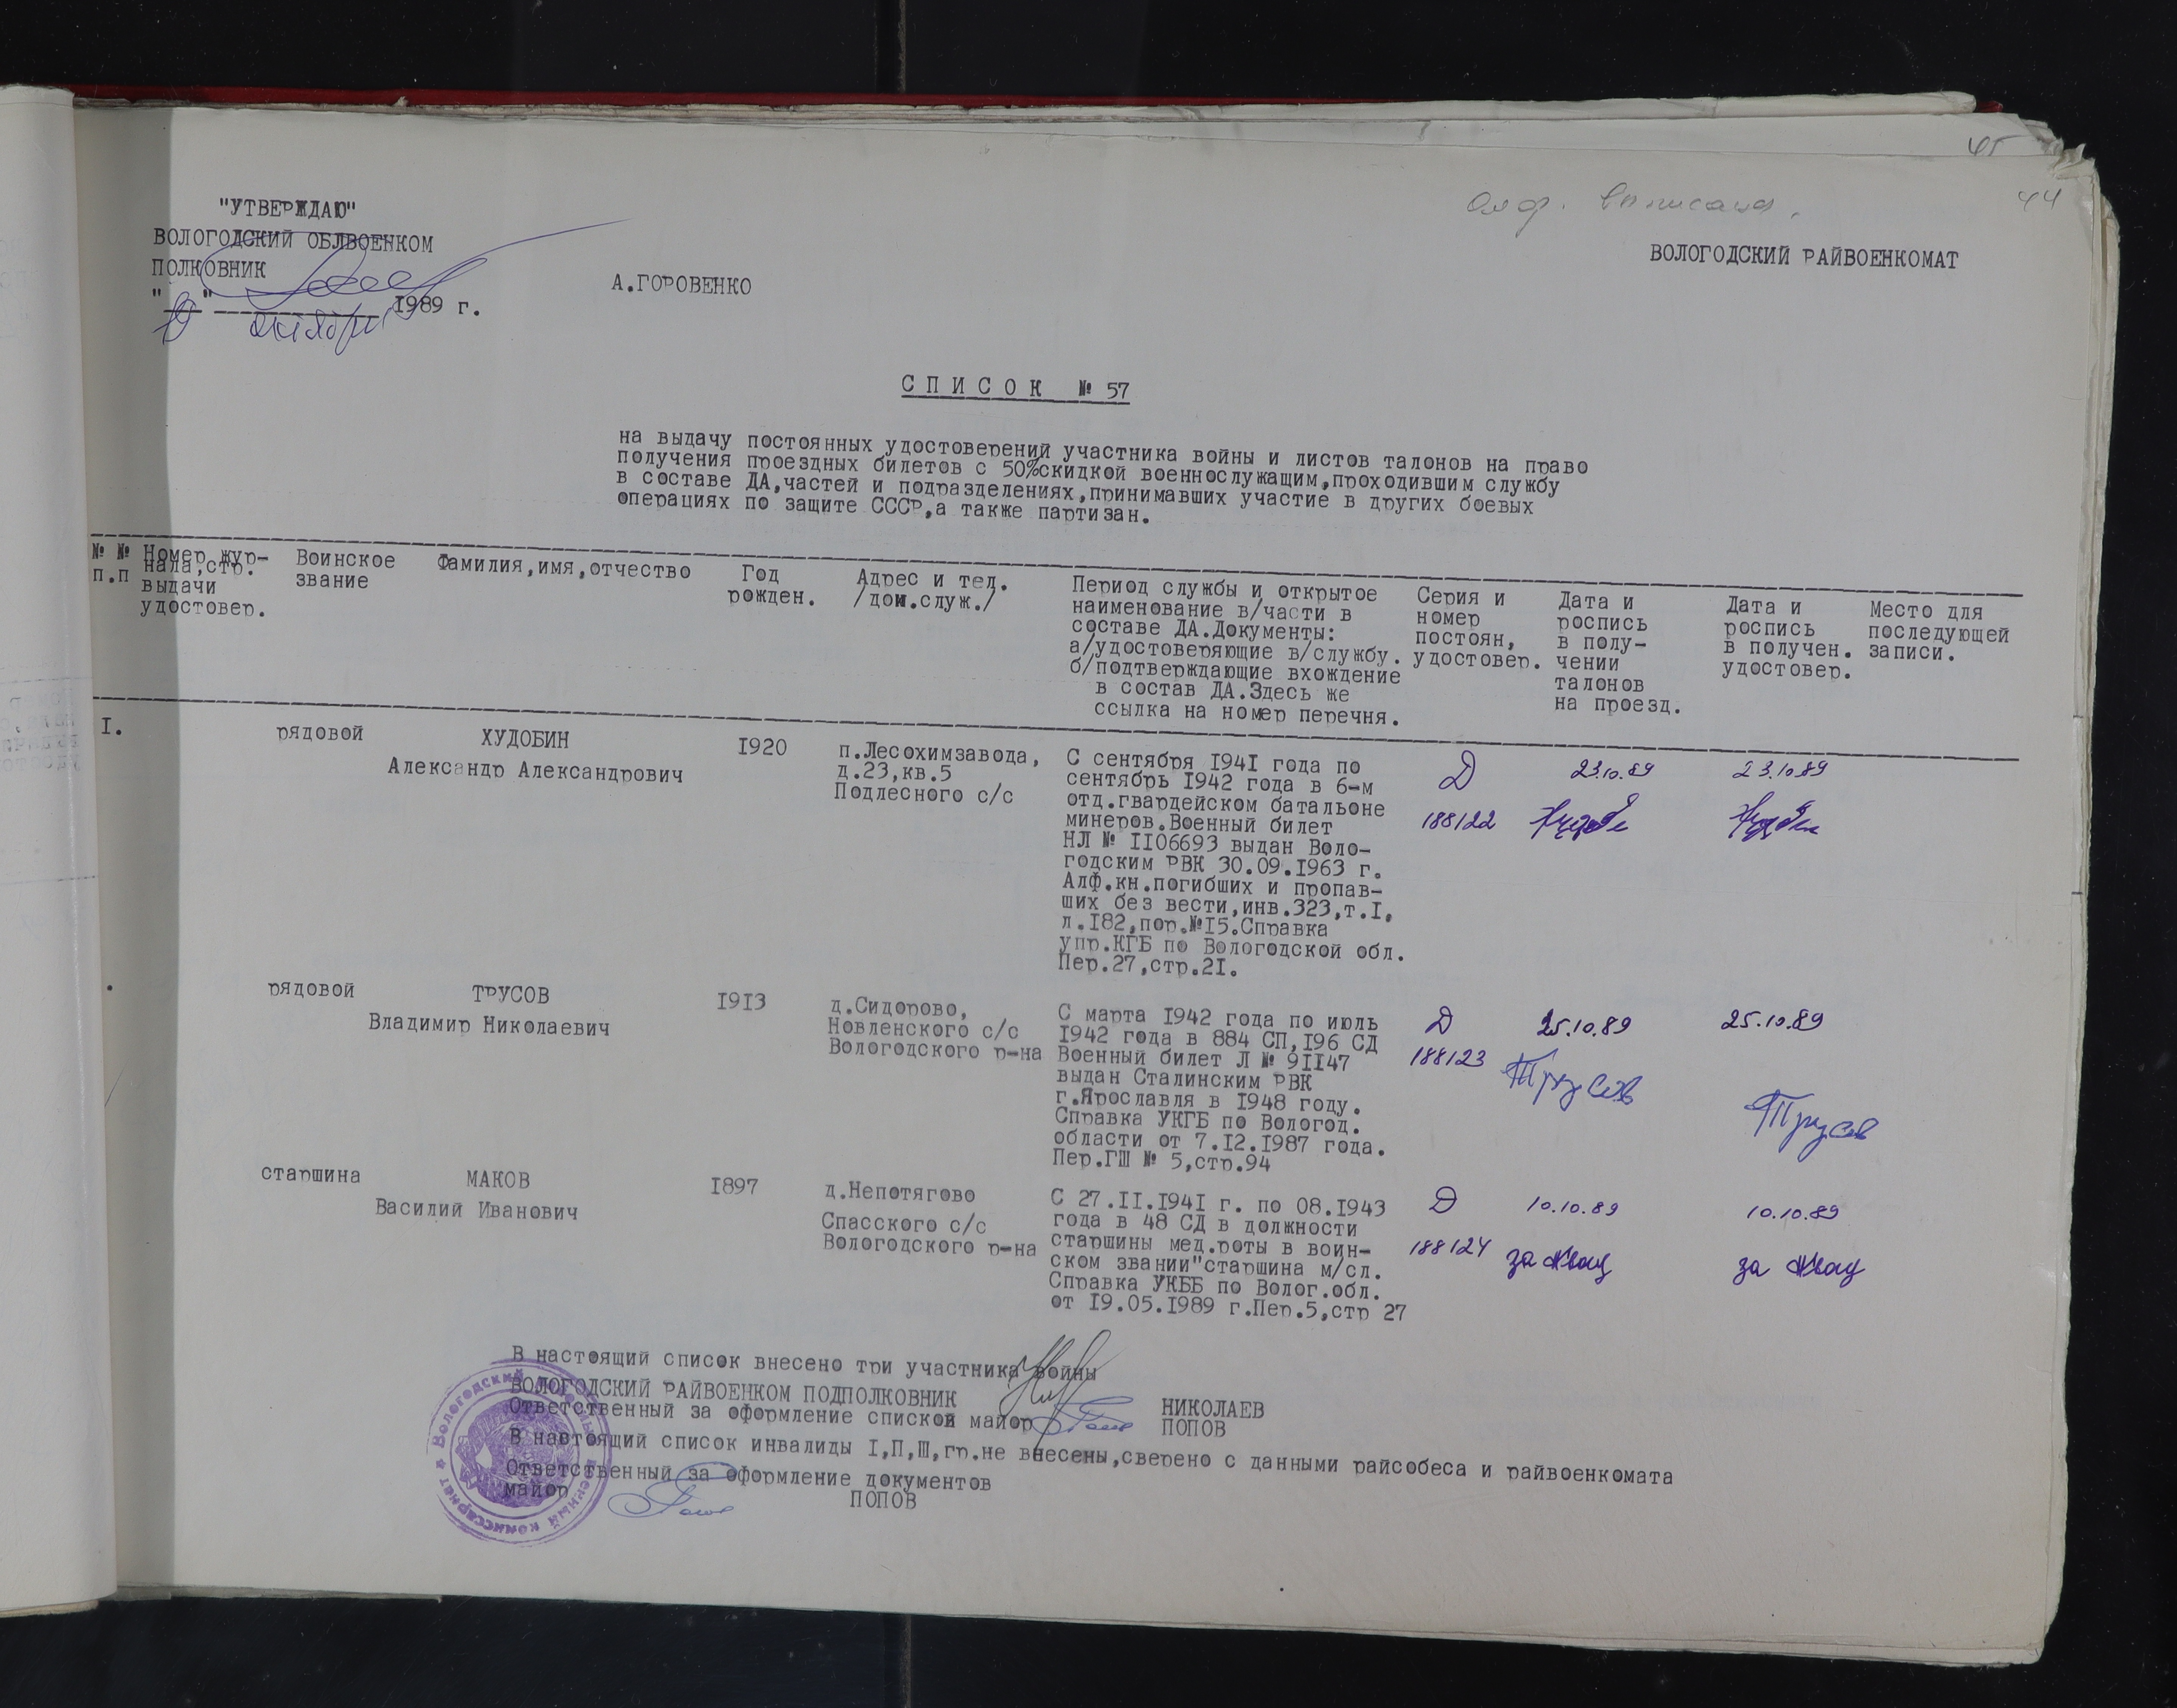 45
44
Алф. выписана.
"УТВЕРЖДАЮ"
ВОЛОГОДСКИЙ ОБЛВОЕНКОМ
ПОЛКОВНИК
А.ГОРОВЕНКО
" " октября 1989 г.
ВОЛОГОДСКИЙ РАЙВОЕНКОМАТ
С П И С О К № 57
на выдачу постоянных удостоверений участника войны и листов талонов на право
получения проездных билетов с 50%скидкой военнослужащим,проходившим службу
в составе ДА,частей и подразделениях,принимавших участие в других боевых
операциях по защите СССР,а также партизан.
№ №
п.п
Номер жур-
нала,стр.
выдачи
удостовер.
Воинское
звание
Фамилия,имя,отчество
Год
рожден.
Адрес и тел.
/дом.служ./
Период службы и открытое
наименование в/части в
составе ДА.Документы:
а/удостоверяющие в/службу.
б/подтверждающие вхождение
в состав ДА.Здесь же
ссылка на номер перечня.
Серия и
номер
постоян,
удостовер.
Дата и
роспись
в полу-
чении
талонов
на проезд.
Дата и
роспись
в получен.
удостовер.
Место для
последующей
записи.
I.
рядовой
ХУДОБИН
Александр Александрович
I920
п.Лесохимзавода,
д.23,кв.5
Подлесного с/с
С сентября I94I года по
сентябрь I942 года в 6-м
отд.гвардейском батальоне
минеров.Военный билет
НЛ № II06693 выдан Воло-
годским РВК 30.09.I963 г.
Алф.кн.погибших и пропав-
ших без вести,инв.323,т.I,
л.I82,пор.№I5.Справка
упр.КГБ по Вологодской обл.
Пер.27,стр.2I.
Д
188122
23.10.89
23.10.89
рядовой
ТРУСОВ
Владимир Николаевич
I9I3
д.Сидорово,
Новленского с/с
Вологодского р-на
С марта I942 года по июль
I942 года в 884 СП,I96 СД
Военный билет Л № 9II47
выдан Сталинским РВК
г.Ярославля в I948 году.
Справка УКГБ по Вологод.
области от 7.I2.I987 года.
Пер.ГШ № 5,стр.94
Д
188123
25.10.89
Трусов
25.10.89
Трусов
старшина
МАКОВ
Василий Иванович
I897
д.Непотягово
Спасского с/с
Вологодского р-на
С 27.II.I94I г. по 08.I943
года в 48 СД в должности
старшины мед.роты в воин-
ском звании"старшина м/сл.
Справка УКББ по Волог.обл.
от I9.05.I989 г.Пер.5,стр 27
Д
188124
10.10.89
за
10.10.89
за
В настоящий список внесено три участника войны
ВОЛОГОДСКИЙ РАЙВОЕНКОМ ПОДПОЛКОВНИК НИКОЛАЕВ
Ответственный за оформление списков майор ПОПОВ
В настоящий список инвалиды I,П,Ш,гр.не внесены,сверено с данными райсобеса и райвоенкомата
Ответственный за оформление документов
майор ПОПОВ
Вологодский районный военный комиссариат